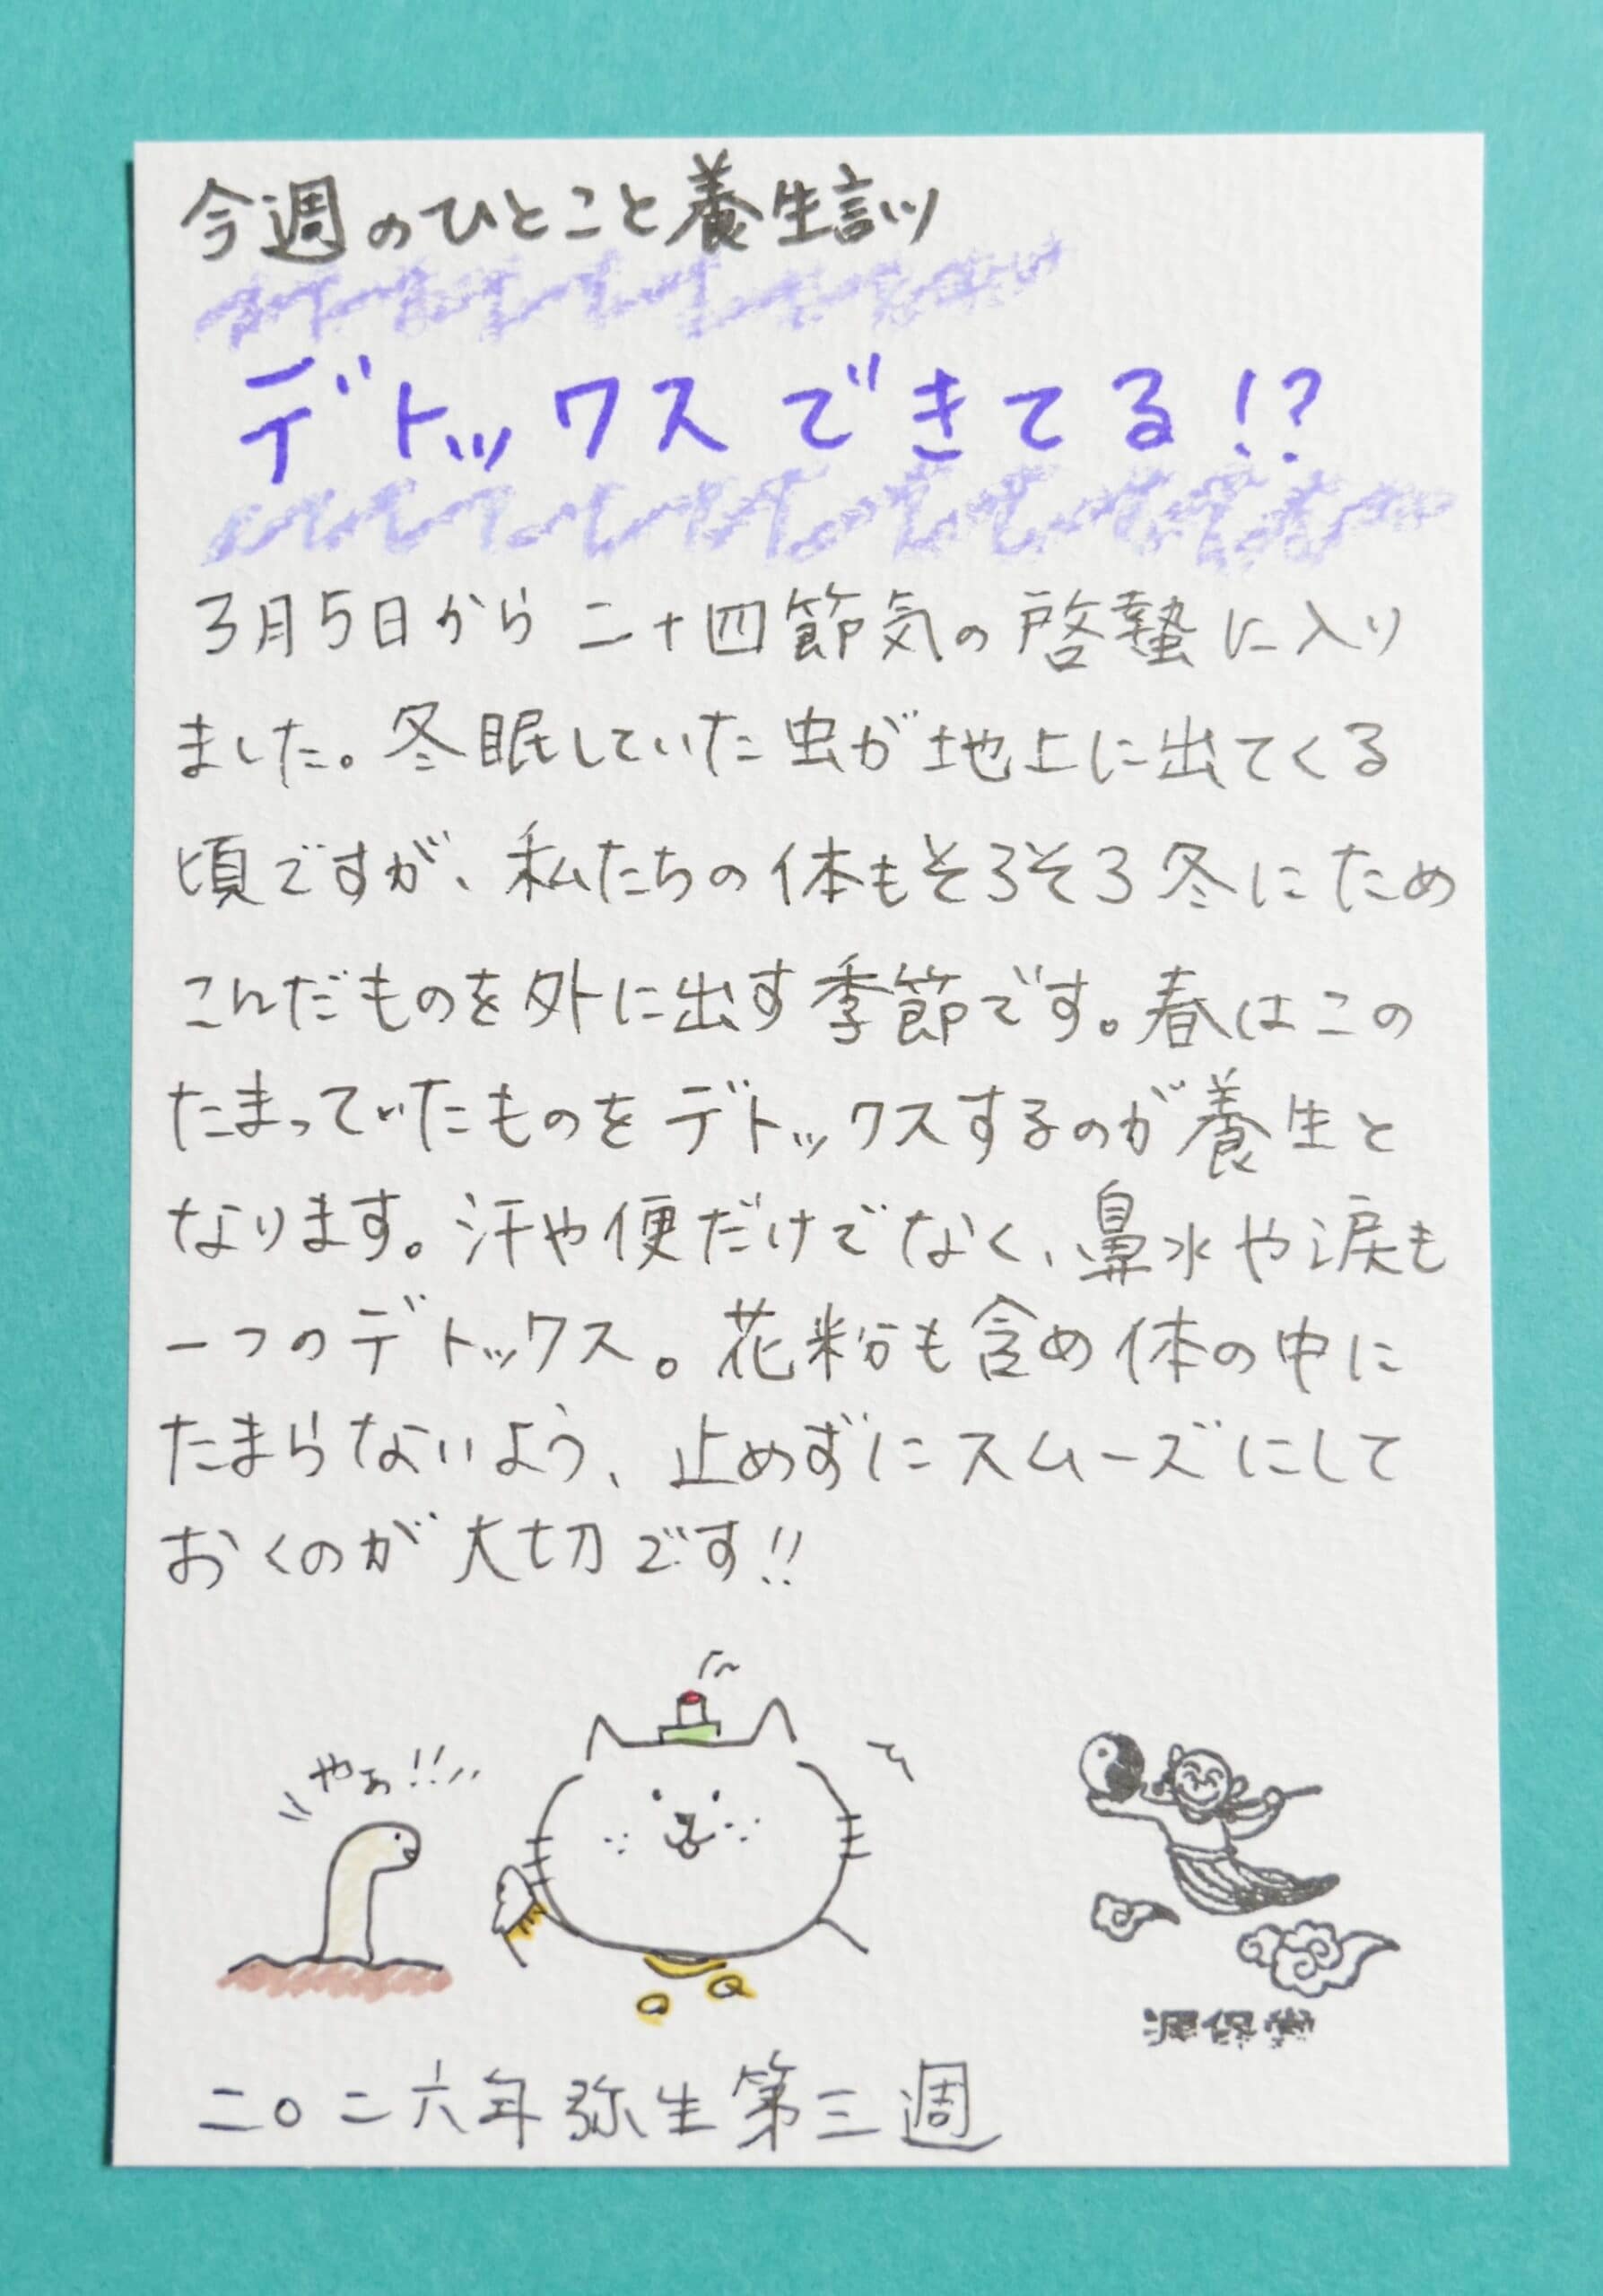 今週のひとこと養生訓
デトックスできてる!?
3月5日から二十四節気の啓蟄に入り
ました。冬眠していた虫が地上に出てくる
頃ですが、私たちの体もそろそろ冬にため
こんだものを外に出す季節です。春はこの
たまっていたものをデトックスするのが養生と
なります。汗や便だけでなく、鼻水や涙も
一つのデトックス。花粉も含め体の中に
たまらないよう、止めずにスムーズにして
おくのが大切です!!
やぁ!!
源保堂
二〇二六年弥生第三週